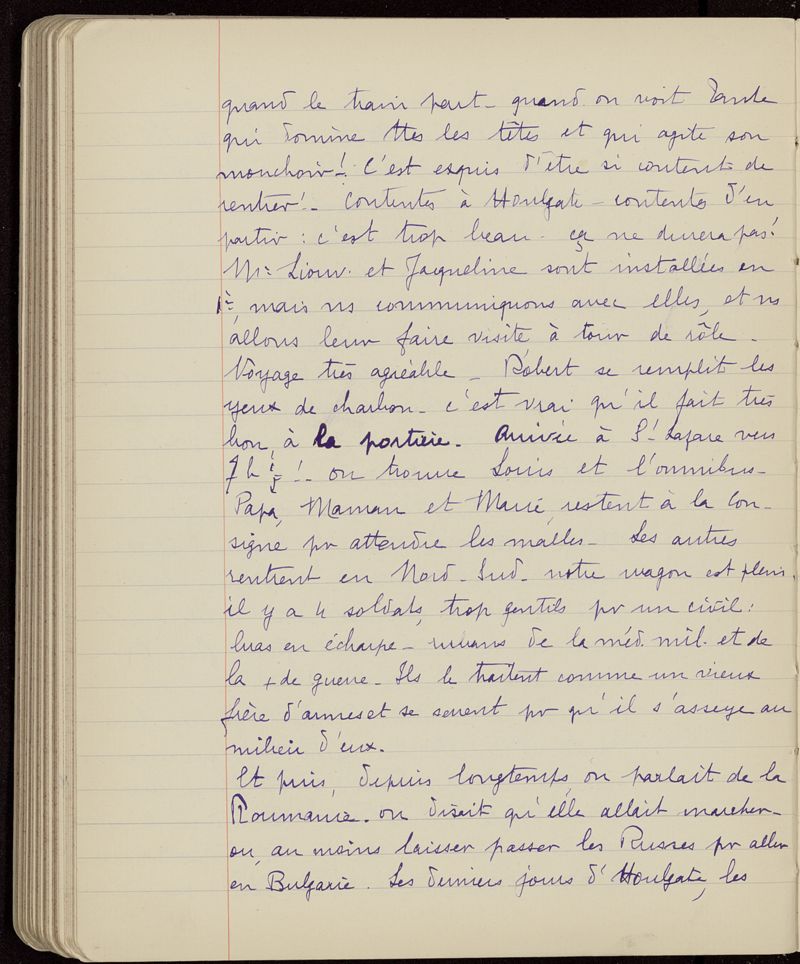 quand le train part - quand on voit Tante
qui domine ttes les têtes et qui agite son
mouchoir ! C'est exquis d'être si content de
rentrer ! - Contentes à Houlgate - contentes d'en
partir : c'est trop beau - ça ne durera pas !
Mme Liouv. et Jacqueline sont installées en
1è, mais ns communiquons avec elles, et ns
allons leur faire visite à tour de rôle -
Voyage très agréable - Robert se remplit les
yeux de charbon - c'est vrai qu'il fait très
bon, à la portière - Arrivée à St Lazare vers
7h ! - on trouve Louis et l'omnibus -
Papa, Maman et Marie, restent à la Con-
signe pr attendre les malles - Les autres
rentrent en Nord-Sud - notre wagon est plein,
il y a 4 soldats, trop gentils pr un civil :
bras en écharpe - rubans de la méd. mil. et de
la + de guerre - Ils le traitent comme un vieux
frère d'armes et se serrent pr qu'il s'asseye au
milieu d'eux.
Et puis, depuis longtemps, on parlait de la
Roumanie - on disait qu'elle allait marcher -
ou, au moins laisser passer les Russes pr aller
en Bulgarie. Les derniers jours d'Houlgate, les